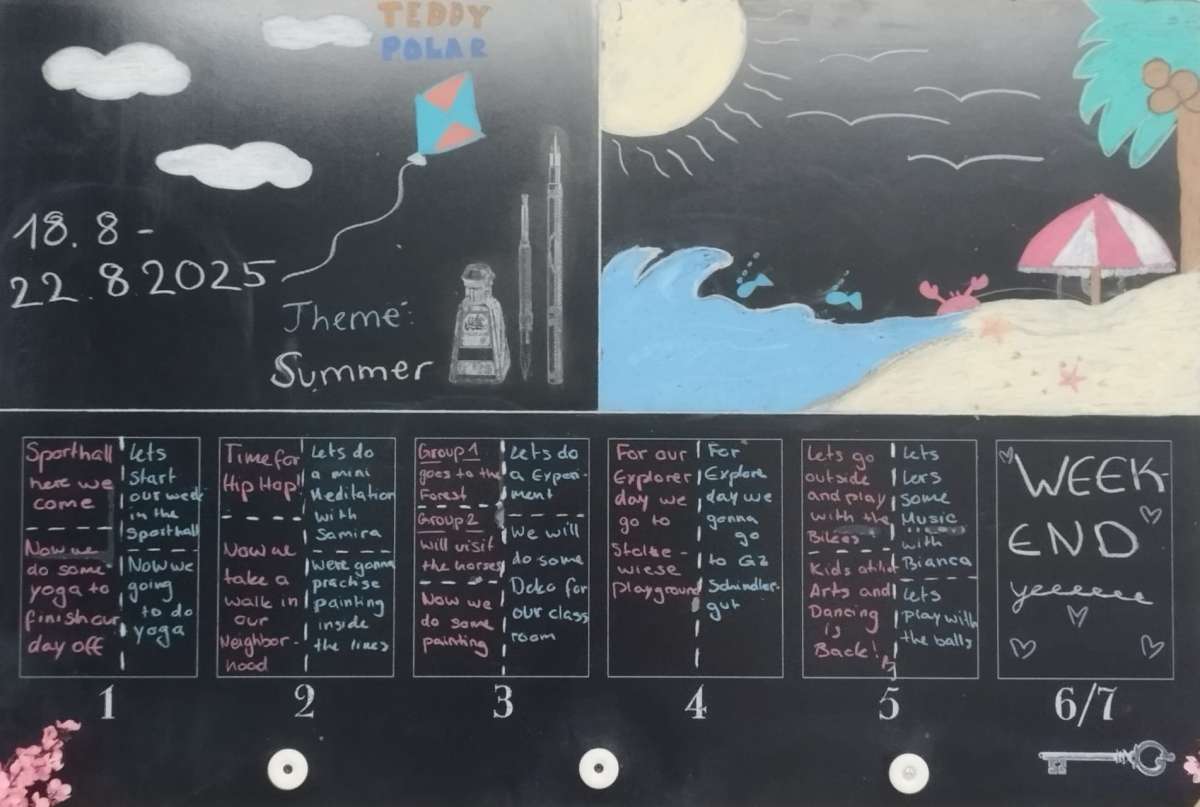 TEDDY
POLAR
18.8-
22.8.2025
Theme:
Summer
Sporthall
here we
come
Now we
do some
yoga to
finish our
day off
Lets
Start
our week
in the
Sporthall
Now we
going
to do
yoga
1
Time for
Hip Hop!
Now we
take a
walk in
our
Neighbor-
hood
Lets do
a mini
Meditation
with
Samira
Were gonna
practise
painting
inside
the lines
2
Group 1
goes to the
Forest
Group 2
will visit
the horses
Now we
do some
painting
Lets do
a Experi-
ment
We will
do some
Deko for
our class
room
3
For our
Explorer
day we
go to
Stolze-
wiese
playground
For
Explore
day we
gonna
go
to GZ
Schindler-
gut
4
Lets go
outside
and play
with the
Bikes
Kids
Arts and
Dancing
is
Back!
Lets
Lers
some
Music
with
Bianca
Lets
play with
the balls
5
WEEK-
END
yeeeeeee
6/7